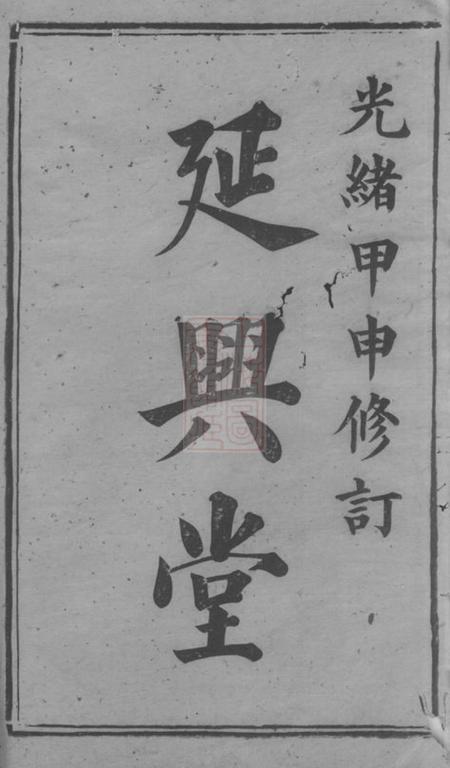 光緒甲申修訂
延興堂